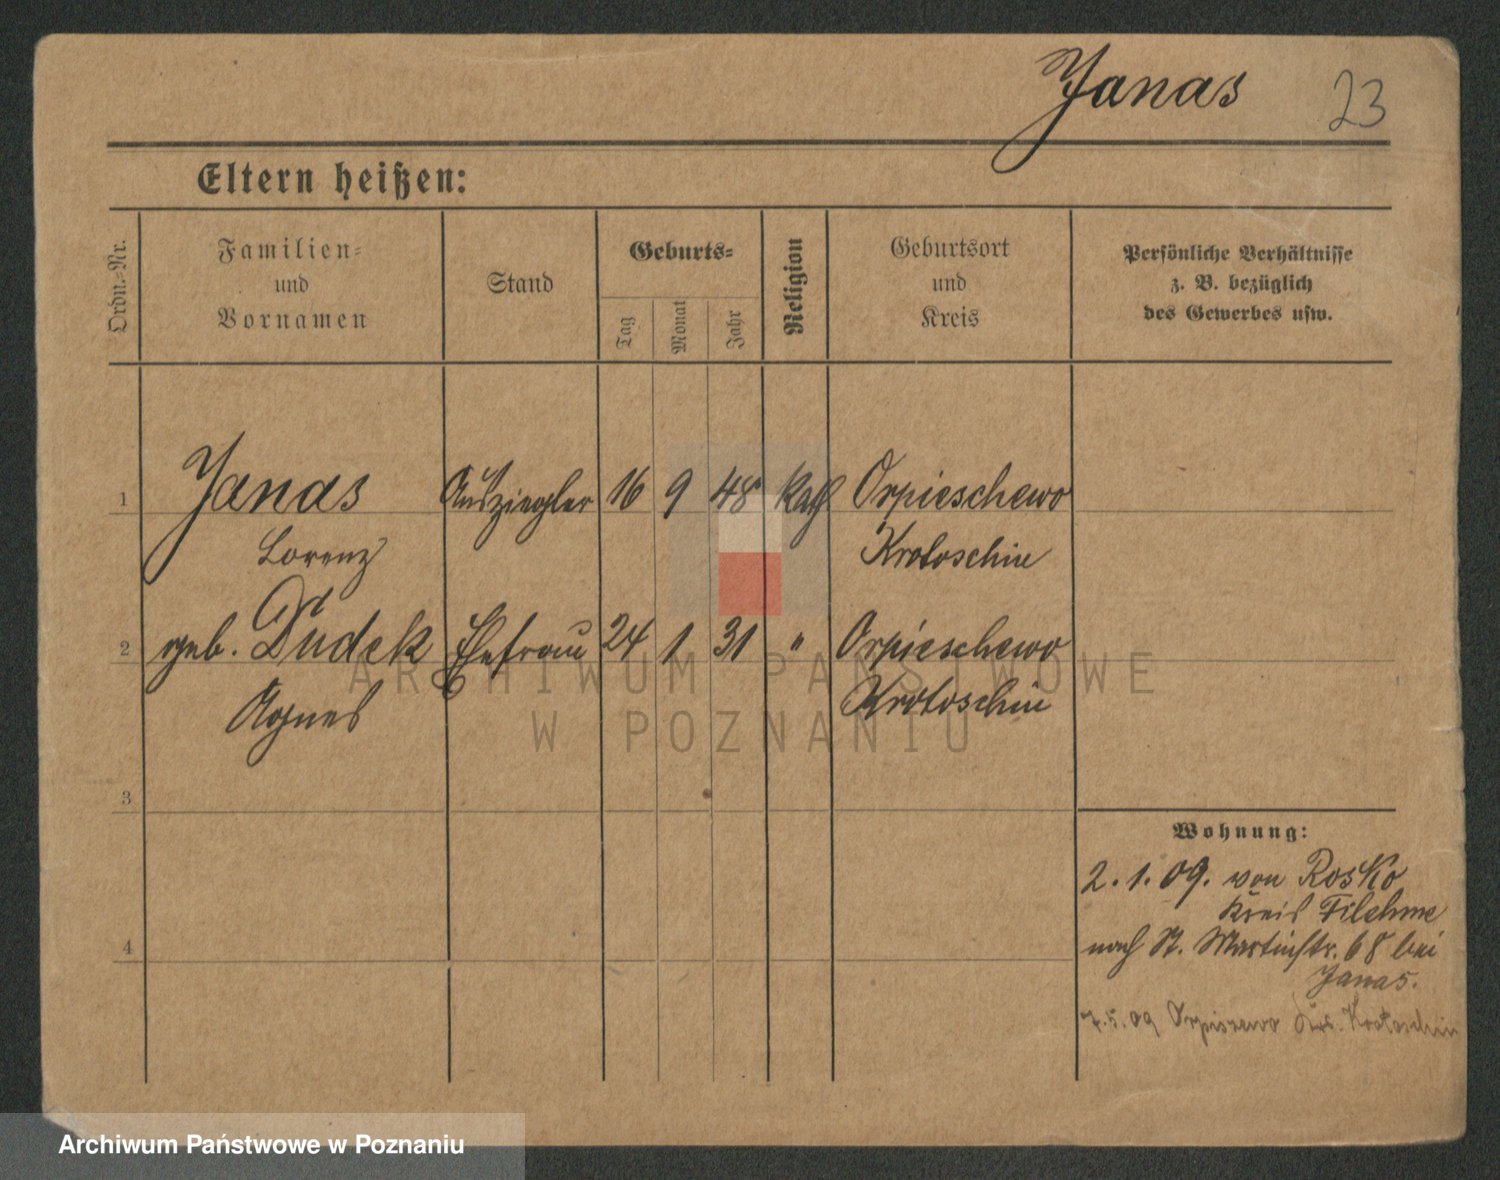 Janas 23
Eltern heißen:
Ordn.-Nr.
Familien-
und
Vornamen
Stand
Geburts-
Tag
Monat
Jahr
Religion
Geburtsort
und
Kreis
Persönliche Verhältnisse
z. B. bezüglich
des Gewerbes usw.
1 Janas Ausziegler 16 9 48 kath Orpieschewo
Lorenz Krotoschin
2 geb. Dudek Ehefrau 24 1 31 " Orpieschewo
Agnes Krotoschin
3
4
Wohnung:
2.1.09. von Rosko
Kreis Filehne
nach St. Martinstr. 68 bei
Janas.
7.5.09 Orpiszewo Krs. Krotoschin
ARCHIWUM PAŃSTWOWE
W POZNANIU
Archiwum Państwowe w Poznaniu